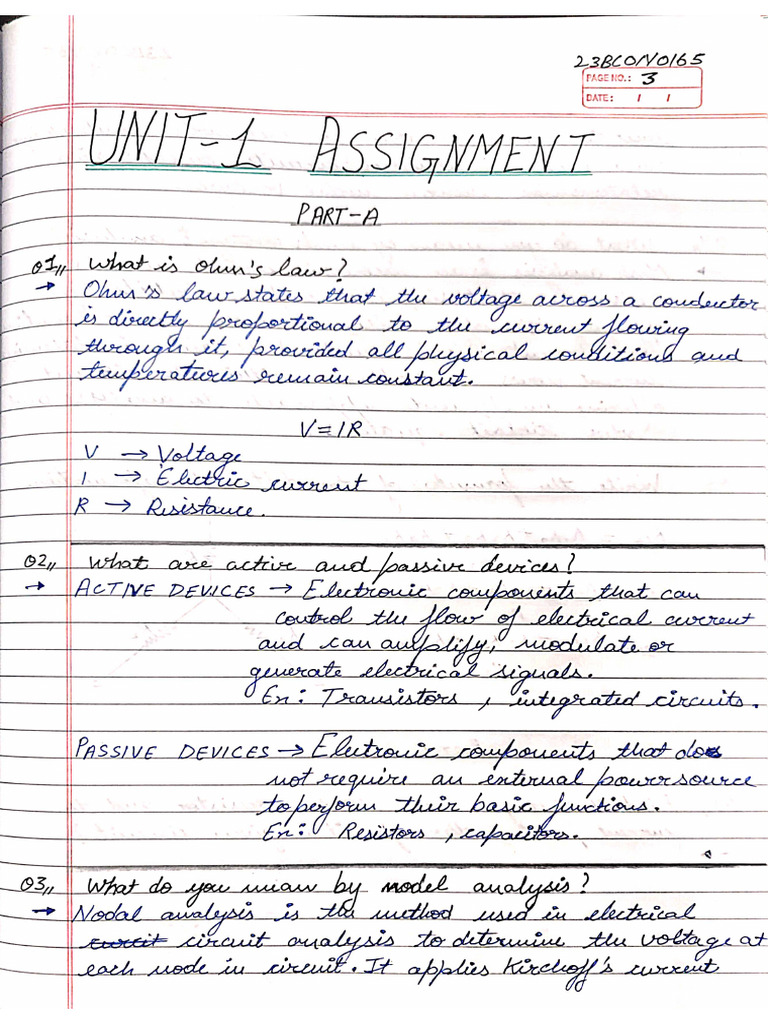 23BCON0165
PAGE NO.: 3
DATE: / /
UNIT-1 ASSIGNMENT
PART-A
Q1,, What is Ohm's law?
→ Ohm's law states that the voltage across a conductor
is directly proportional to the current flowing
through it, provided all physical conditions and
temperatures remain constant.
V=IR
V → Voltage
I → Electric current
R → Resistance.
Q2,, What are active and passive devices?
→ ACTIVE DEVICES → Electronic components that can
control the flow of electrical current
and can amplify, modulate or
generate electrical signals.
Ex: Transistors, integrated circuits.
PASSIVE DEVICES → Electronic components that does
not require an external power source
to perform their basic functions.
Ex: Resistors, capacitors.
Q3,, What do you mean by nodel analysis?
→ Nodal analysis is the method used in electrical
circuit analysis to determine the voltage at
each node in circuit. It applies Kirchoff's current